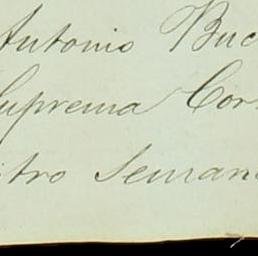 Antonio Buc
Suprema Cor
itro Semana